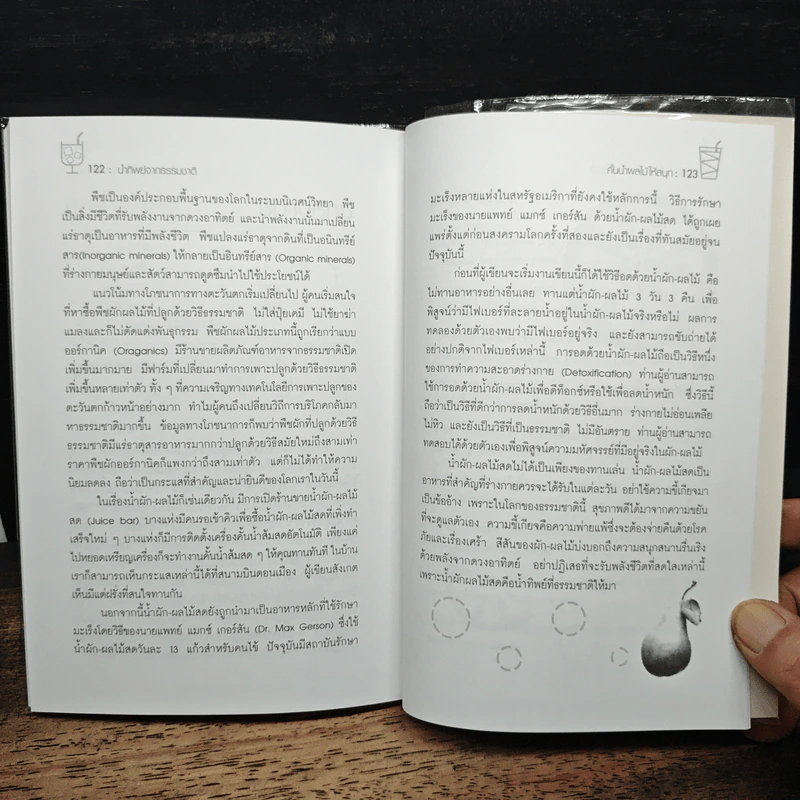 122 : น้ำทิพย์จากธรรมชาติ
พืชเป็นองค์ประกอบพื้นฐานของโลกในระบบนิเวศน์วิทยา พืช
เป็นสิ่งมีชีวิตที่รับพลังงานจากดวงอาทิตย์ และนำพลังงานนั้นมาเปลี่ยน
แร่ธาตุเป็นอาหารที่มีพลังชีวิต พืชแปลงแร่ธาตุจากดินที่เป็นอนินทรีย์
สาร(Inorganic minerals) ให้กลายเป็นอินทรีย์สาร (Organic minerals)
ที่ร่างกายมนุษย์และสัตว์สามารถดูดซึมนำไปใช้ประโยชน์ได้
แนวโน้มทางโภชนาการทางตะวันตกเริ่มเปลี่ยนไป ผู้คนเริ่มสนใจ
ที่หาซื้อพืชผักผลไม้ที่ปลูกด้วยวิธีธรรมชาติ ไม่ใส่ปุ๋ยเคมี ไม่ใช้ยาฆ่า
แมลงและก็ไม่ตัดแต่งพันธุกรรม พืชผักผลไม้ประเภทนี้ถูกเรียกว่าแบบ
ออร์กานิค (Oraganics) มีร้านขายผลิตภัณฑ์อาหารจากธรรมชาติเปิด
เพิ่มขึ้นมากมาย มีฟาร์มที่เปลี่ยนมาทำการเพาะปลูกด้วยวิธีธรรมชาติ
เพิ่มขึ้นหลายเท่าตัว ทั้ง ๆ ที่ความเจริญทางเทคโนโลยีการเพาะปลูกของ
ตะวันตกก้าวหน้าอย่างมาก ทำไมผู้คนถึงเปลี่ยนวิถีการบริโภคกลับมา
หาธรรมชาติมากขึ้น ข้อมูลทางโภชนาการก็พบว่าพืชผักที่ปลูกด้วยวิธี
ธรรมชาติมีแร่ธาตุสารอาหารมากกว่าปลูกด้วยวิธีสมัยใหม่ถึงสามเท่า
ราคาพืชผักออร์กานิคก็แพงกว่าถึงสามเท่าตัว แต่ก็ไม่ได้ทำให้ความ
นิยมลดลง ถือว่าเป็นกระแสที่สำคัญและน่ายินดีของโลกเราในวันนี้
ในเรื่องน้ำผัก-ผลไม้ก็เช่นเดียวกัน มีการเปิดร้านขายน้ำผัก-ผลไม้
สด (Juice bar) บางแห่งมีคนรอเข้าคิวเพื่อซื้อน้ำผัก-ผลไม้สดที่เพิ่งทำ
เสร็จใหม่ ๆ บางแห่งก็มีการติดตั้งเครื่องคั้นน้ำส้มสดอัตโนมัติ เพียงแค่
ไปหยอดเหรียญเครื่องก็จะทำงานคั้นน้ำส้มสด ๆ ให้คุณทานทันที ในบ้าน
เราก็สามารถเห็นกระแสเหล่านี้ได้ที่สนามบินดอนเมือง ผู้เขียนสังเกต
เห็นมีแต่ฝรั่งที่สนใจทานกัน
นอกจากนี้น้ำผัก-ผลไม้สดยังถูกนำมาเป็นอาหารหลักที่ใช้รักษา
มะเร็งโดยวิธีของนายแพทย์ แมกซ์ เกอร์สัน (Dr. Max Gerson) ซึ่งใช้
น้ำผัก-ผลไม้สดวันละ 13 แก้วสำหรับคนไข้ ปัจจุบันมีสถาบันรักษา
คั้นน้ำผลไม้ให้สนุก : 123
มะเร็งหลายแห่งในสหรัฐอเมริกาที่ยังคงใช้หลักการนี้ วิธีการรักษา
มะเร็งของนายแพทย์ แมกซ์ เกอร์สัน ด้วยน้ำผัก-ผลไม้สด ได้ถูกเผย
แพร่ตั้งแต่ก่อนสงครามโลกครั้งที่สองและยังเป็นเรื่องที่ทันสมัยอยู่จน
ปัจจุบันนี้
ก่อนที่ผู้เขียนจะเริ่มงานเขียนนี้ก็ได้ใช้วิธีอดด้วยน้ำผัก-ผลไม้ คือ
ไม่ทานอาหารอย่างอื่นเลย ทานแต่น้ำผัก-ผลไม้ 3 วัน 3 คืน เพื่อ
พิสูจน์ว่ามีไฟเบอร์ที่ละลายน้ำอยู่ในน้ำผัก-ผลไม้จริงหรือไม่ ผลการ
ทดลองด้วยตัวเองพบว่ามีไฟเบอร์อยู่จริง และยังสามารถขับถ่ายได้
อย่างปกติจากไฟเบอร์เหล่านี้ การอดด้วยน้ำผัก-ผลไม้ถือเป็นวิธีหนึ่ง
ของการทำความสะอาดร่างกาย (Detoxification) ท่านผู้อ่านสามารถ
ใช้การอดด้วยน้ำผัก-ผลไม้เพื่อดีท็อกซ์หรือใช้เพื่อลดน้ำหนัก ซึ่งวิธีนี้
ถือว่าเป็นวิธีที่ดีกว่าการลดน้ำหนักด้วยวิธีอื่นมาก ร่างกายไม่อ่อนเพลีย
ไม่หิว และยังเป็นวิธีที่เป็นธรรมชาติ ไม่มีอันตราย ท่านผู้อ่านสามารถ
ทดสอบได้ด้วยตัวเองเพื่อพิสูจน์ความมหัศจรรย์ที่มีอยู่จริงในผัก-ผลไม้
น้ำผัก-ผลไม้สดไม่ได้เป็นเพียงของทานเล่น น้ำผัก-ผลไม้สดเป็น
อาหารที่สำคัญที่ร่างกายควรจะได้รับในแต่ละวัน อย่าใช้ความขี้เกียจมา
เป็นข้ออ้าง เพราะในโลกของธรรมชาตินี้ สุขภาพดีได้มาจากความขยัน
ที่จะดูแลตัวเอง ความขี้เกียจคือความพ่ายแพ้ซึ่งจะต้องจ่ายคืนด้วยโรค
ภัยและเรื่องเศร้า สีสันของผัก-ผลไม้บ่งบอกถึงความสนุกสนานรื่นเริง
ด้วยพลังจากดวงอาทิตย์ อย่าปฏิเสธที่จะรับพลังชีวิตที่สดใสเหล่านี้
เพราะน้ำผัก-ผลไม้สดคือน้ำทิพย์ที่ธรรมชาติให้มา